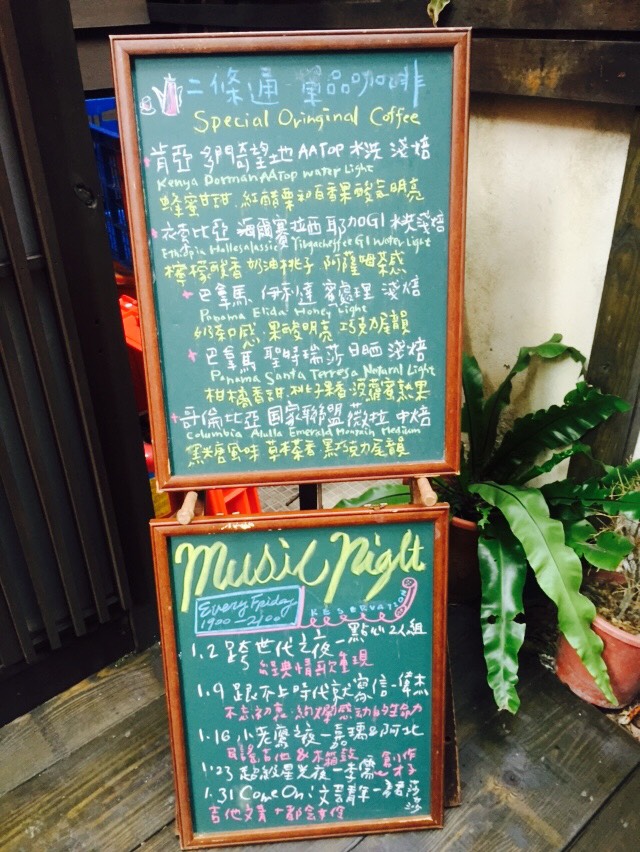 二條通 單品咖啡
Special Oringinal Coffee
肯亞 多門奇望地 AATOP 水洗 淺焙
Kenya Dorman AATop water Light
蜂蜜甘甜 紅醋栗和百香果酸氣明亮
衣索比亞 海爾賽拉西 耶加G1 水洗淺焙
Ethiopia Hallesalassie Yirgacheffet G1 water Light
檸檬酸香 奶油桃子 阿薩姆茶感
巴拿馬 伊莉達 蜜處理 淺焙
Panama Elida Honey Light
奶茶口感 果酸明亮 巧克力尾韻
巴拿馬 聖特瑞莎 日晒 淺焙
Panama Santa Terresa Natural Light
柑橘香甜 桃子果香 菠蘿蜜熟果
哥倫比亞 國家聯盟 薇拉 中焙
Columbia Emerald Mountain Medium
黑糖風味 草本茶香 黑巧克力尾韻
Music Night
Every Friday
1900-2100
RESERVATION
1.2 跨世代之夜-點心2人組
經典情歌重現
1.9 跟不上時代就寫信-偉杰
不忘初衷 絢爛感动的生命力
1.16 小老鷹之夜-嘉璃&阿北
民謠吉他&木箱鼓
1.23 超級星光夜-李 創作才子
1.31 Come On!文藝青年-君莎莎
吉他文青